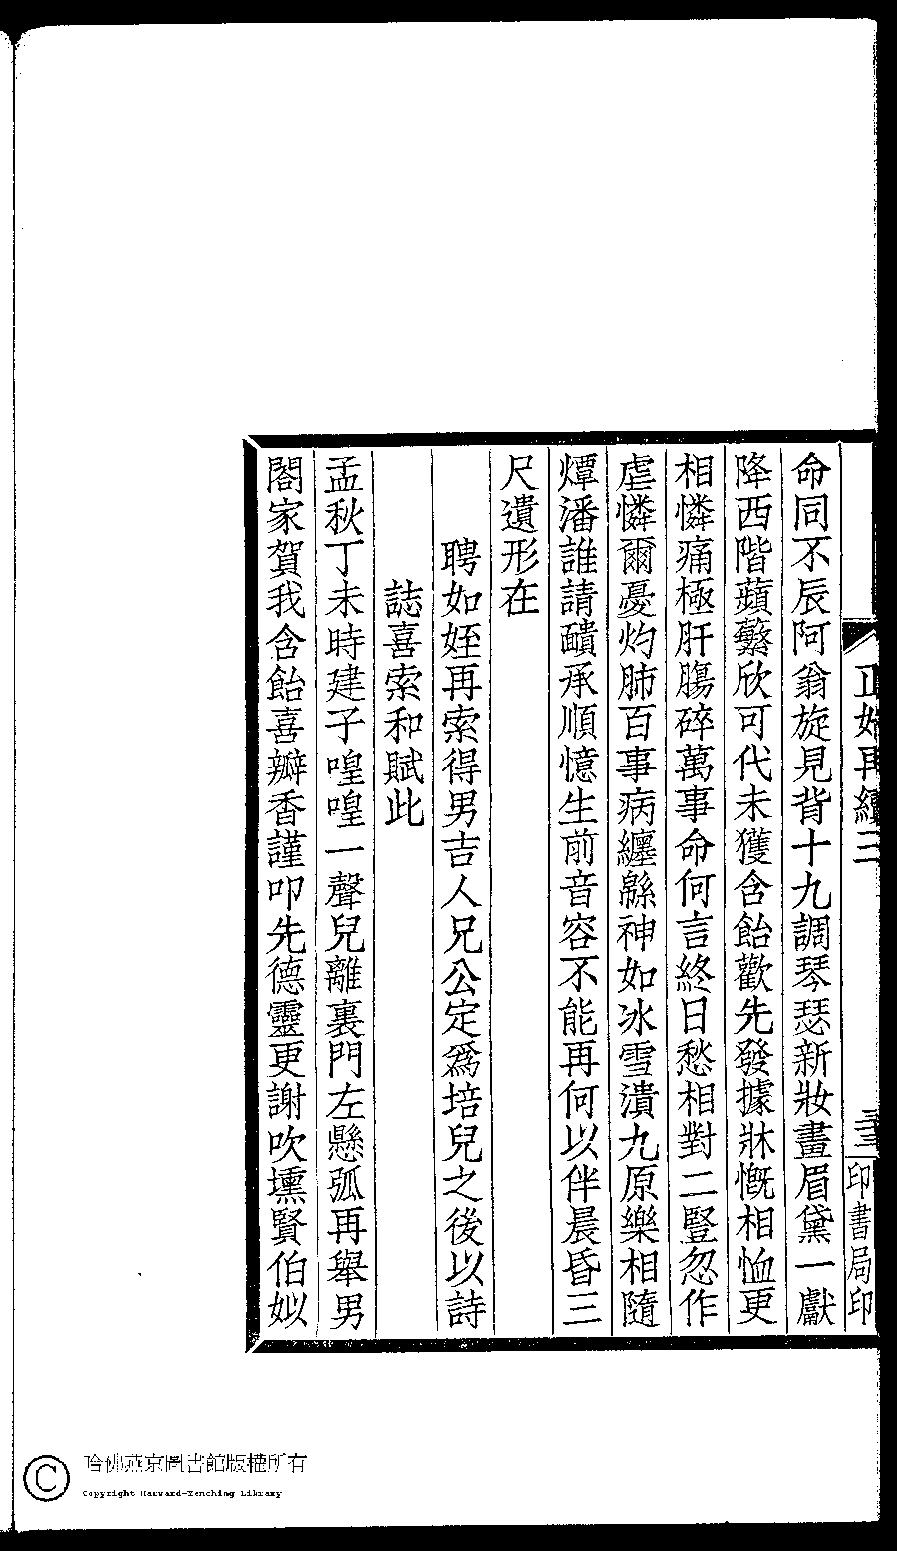 正始再續三
三三
印書局印
命同不辰阿翁旋見背十九調琴瑟新妝畫眉黛一獻
降西階蘋蘩欣可代未獲含飴歡先發據牀慨相恤更
相憐痛極肝腸碎萬事命何言終日愁相對二豎忽作
虐憐爾憂灼肺百事病纏緜神如冰雪潰九原樂相隨
燂潘誰請靧承順憶生前音容不能再何以伴晨昏三
尺遺形在
聘如姪再索得男吉人兄公定爲培兒之後以詩
誌喜索和賦此
孟秋丁未時建子喤喤一聲兒離裏門左懸弧再舉男
閤家賀我含飴喜瓣香謹叩先德靈更謝吹壎賢伯姒
哈佛燕京圖書館版權所有
Copyright Harvard-Yenching Library